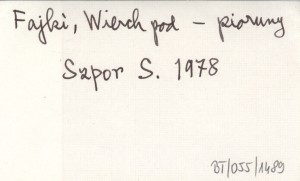 Fajki, Wierch pod - pioruny
Szpor S. 1978
BT/055/1489